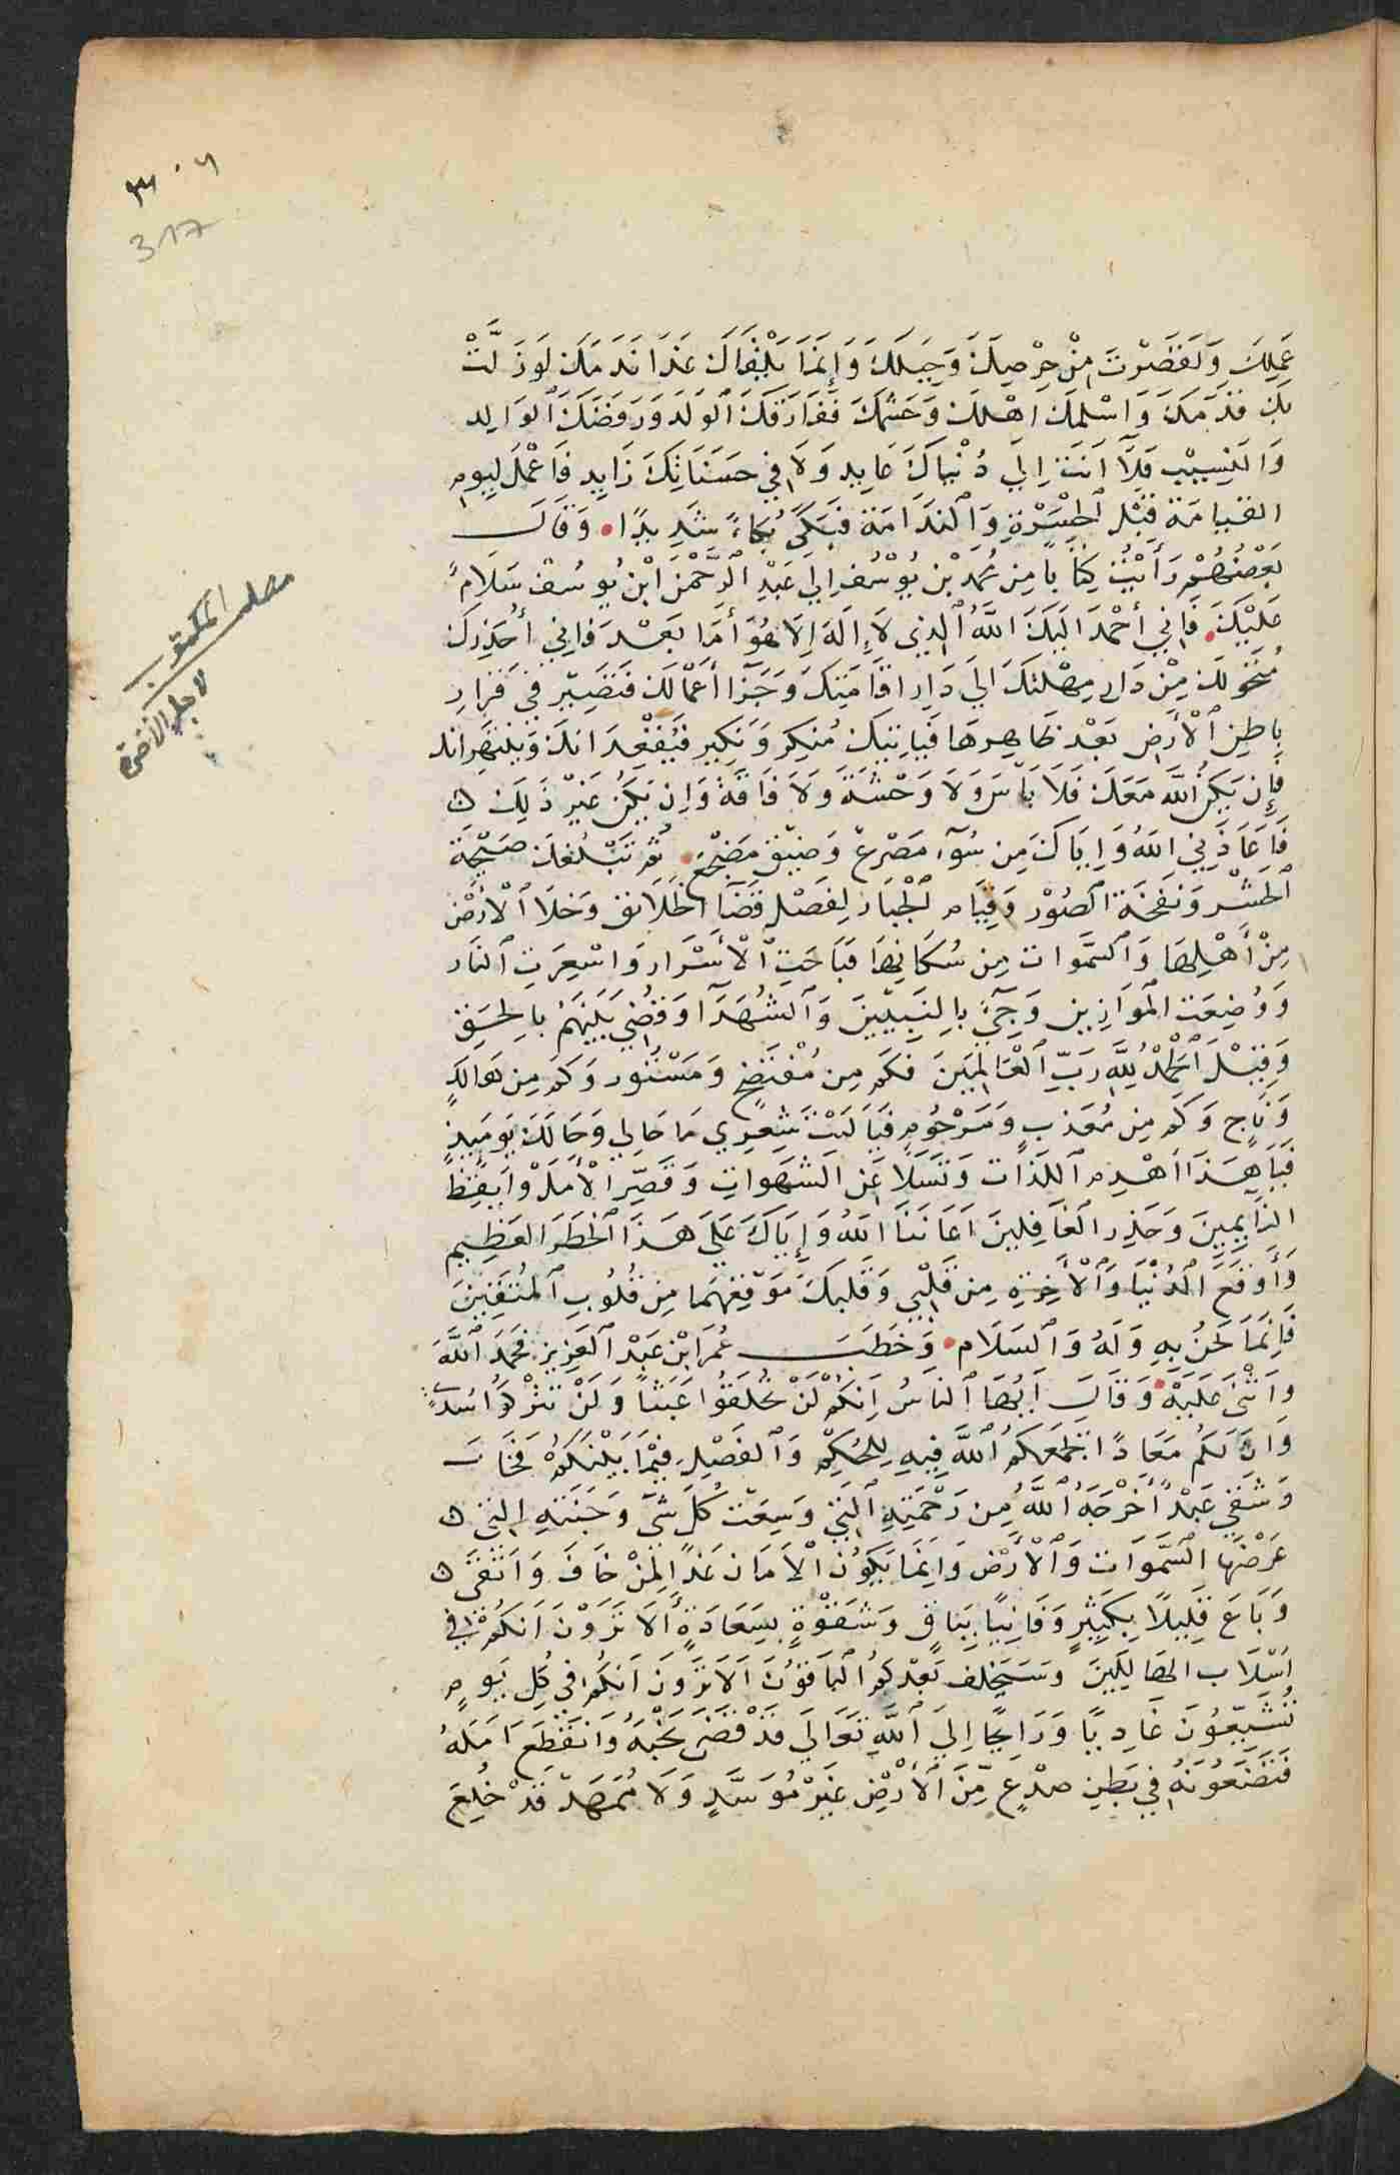 ٣٠٦
317
عَمَلِكَ وَلَقَصَّرْتَ مِنْ حِرْصِكَ وَحِيَلِكَ وَإِنَّمَا يَلْقَاكَ غَدًا نَدَمُكَ لَوْ زَلَّتْ
بِكَ قَدَمُكَ وَاسْلَمَكَ اهْلُكَ وَحَشَمُكَ فَفَارَقَكَ ٱلْوَلَدُ وَرَفَضَكَ ٱلْوَالِد
وَالنَسِيْبِ فَلَآ اَنْتَ اِلَي دُنْيَاكَ عَايِد وَلَا فِي حَسَنَاتِكَ زَايِد فَاعْمَلْ لِيَومِ
القيَامَة قَبْل ٱلْحَسْرَةِ وَٱلنَدَامَة فَبَكَيَ بُكَاءً شَدِيدًا • وَقَالَ
بَعْضُهُمْ رَأَيْتُ كِتَابًا مِنْ مُحَمَّدْ بْن يُوْسُف اِلَي عَبْدِ ٱلرَّحْمَن ابْن يُوسُفْ سَلَامٌ
عَلَيْكَ • فَإِنِي أَحْمَدُ الَيْكَ اَللَّهُ ٱلَّذِي لَا إِلَهَ إِلَا هُوَ أَمَا بَعْدَ فَانِي أُحَذِرُكَ
مُتَحَوَلَكَ مِنْ دَارِ مُهْلَتِكَ الَي دَارِ اقَامَتِكَ وَجَزَآ أَعْمَالَكَ فَتَصِيْر فِي قَرَارِ
بَاطِنِ ٱلْأَرْضِ بَعْدَ ظَاهِرِهَا فَيَاتِيكَ مُنكَر وَنَكِير فَيُقْعِدَانِكَ وَيَنْتَهِرَانك
فَإِن يَكُنْ ٱللَّه مَعَكَ فَلَا بَأسَ وَلَا وَحْشَةَ وَلَا فَاقَةَ وَاِن يَكُنْ غَيْرَ ذَلِكَ
فَاَعَاذَنِي اللَهُ وَاِيَاكَ مِن سُوۤءِ مَصْرَعْ وَضِيْقِ مَضْجَعْ • ثُمَ تَبْلُغُكَ صَيْحَةَ
ٱلْحَشْر وَنَفْخَة ٱلصُوْر وَقِيَام ٱلْجَبَار لِفَصْل قَضَآ ٱلْخَلَائق وَخَلَا ٱلْأَرْضُ
مِنْ أَهْلِهَا وَٱلسَمَوات مِن سُكَانِهَا فَبَاحَتِ ٱلْأَسْرَار وَاسْعِرَتِ ٱلنَار
وَوُضِعَت الْمَوَازِين وَجِيءَ بِالنَبِيِيْنَ وَٱلشُهَدَآ وَقُضِي بَيْنَهُمْ بِالْحَقِ
وَقِيْلَ ٱلْحَمْدُ لِلَّهِ رَبِّ ٱلْعَالَمِينَ فَكَم مِن مُفْتَضَحٍ وَمَسْتُورٍ وَكَم مِن هَالِكٍ
وَنَاجٍ وَكَم مِن مُعَذبٍ وَمَرْحُوم فَيَا لَيْتَ شِعِرِي مَا حَالِي وَحَالَكَ يَومَيِذٍ
فَبِهَذَا اَهْدِم ٱللَّذَات وَتَسَلَا عَن ٱلشَهَوَاتِ وَقَصِّر ٱلْأَمَلَ وَايَقِظْ
النَايِمِينَ وَحَذِر ٱلْغَافِلِينَ اَعَانَنَا اللَهُ وَاِيَاكَ عَلَي هَذَا ٱلْخَطَر العَظِيم
وَأَوقَع ٱلدُنْيَا وَٱلْأَخِرَة مِن قَلْبِي وَقَلْبِكَ مَوقِعَهُمَا مِن قُلُوبِ ٱلْمُتَقِينَ
فَإِنَمَا نَحْنُ بِهِ وَلَهُ وَٱلسَلَام • وَخَطَبَ عُمَر ابْن عَبْد ٱلعَزِيز فَحَمَدَ ٱللَّهَ
وَاَثْنَى عَلَيْهْ • وَقَالَ اَيُهَا ٱلنَاسُ اِنَكُمْ لَنْ تُخْلَقُوا عَبَثًا وَلَنْ تُتْرَكُوا سُدىً
وَاِنَ لَكُم مَعَادًا يَجْمَعَكُم ٱللَّهُ فِيهِ لِلحُكْمِ وَٱلفَصْلِ فِيْمَا بَيْنَكُمْ فَخَابَ
وَشَقِي عَبْدٌ أَخْرَجَهُ ٱللَّهُ مِن رَحْمَتِهِ ٱلَتِي وَسِعَت كُلَ شَيْ وَجَنَتِهِ الَتِي
عَرْضُهَا ٱلسَّمَوَات وَٱلْأَرْض وَاِنَمَا يَكُونُ ٱلْأَمَان غَدًا لِمَنْ خَافَ وَاتَقَى
وَبَاعَ قَلِيلًا بِكَثِيْرٍ وَفَانِيًا بِبَاقٍ وَشَقْوَةٍ بِسَعَادَةٍ أَلَا تَرَوْنَ اَنَكُمْ فِي
اَسْلَاب الهَالِكِينَ وَسَيَخْلف بَعْدكُم ٱلبَاقُونَ اَلَا تَرَوْنَ اَنَكُم فِي كُلِ يَومٍ
تُشَيِّعُونَ غَادِيًا وَرَايِحًا اِلَيَ ٱللَّهِ تَعَالَي قَدْ قَضَى نَحْبَهُ وَانقَطَعَ اَمَلَهُ
فَتَضَعُونَهُ فِي بَطِنِ صَدْعٍ مِنَ ٱلْأَرْضِ غَيْر مُوَسَّدٍ وَلَا مُمَهَدْ قَدْ خُلِعَ
مطلب المكتوب
لاجل الآخرة